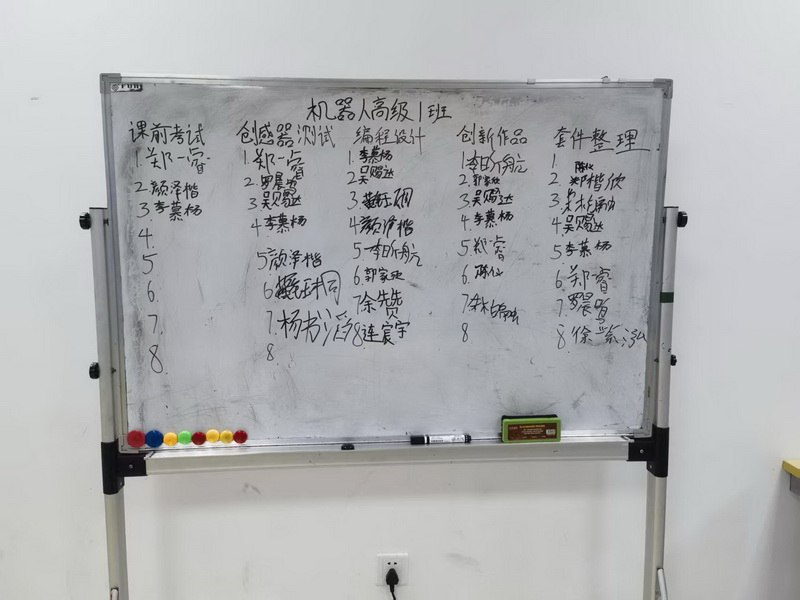 机器人高级1班
课前考试
1.郑一睿
2.颜泽楷
3.李慕杨
4.
5
6.
7.
8.
创感器测试
1.郑一睿
2.罗晨
3.吴赐达
4.李慕杨
5颜泽楷
6.
7.杨书滔
8.
编程设计
1.李慕杨
2.吴赐达
3.
4.颜泽楷
5.李昕航
6.郭家
7徐赞
8.连宸宇
创新作品
1李昕航
2.郭家
3.吴赐达
4.李慕杨
5.郑睿
6.陈仪
7.
8
套件整理
1.陈仪
2.郑楷欣
3.
4.吴赐达
5.李慕杨
6.郑睿
7.罗晨
8.徐